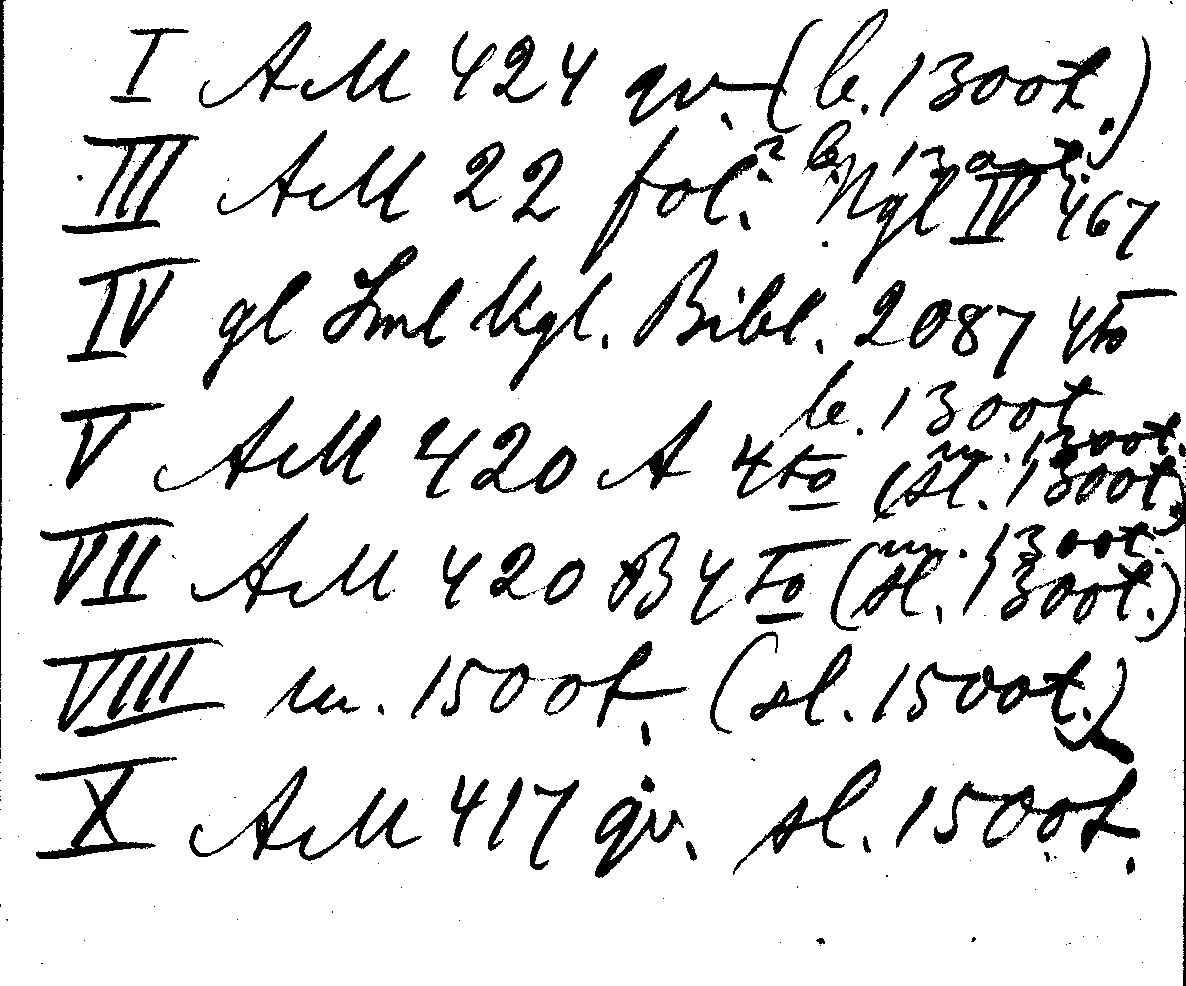 I AM 424 qv. (b. 1300t.)
III AM 22 fol. 2 b. 1300t. Ngl IV 467
IV gl Saml Kgl. Bibl. 2087 4to
b. 1300t
V AM 420 A 4to (sl. 1300t) m. 1300t.
VII AM 420 B 4to (sl. 1300t.) m. 1300t.
VIII m. 1500t. (sl. 1500t.)
X AM 417 qv. sl. 1500t.